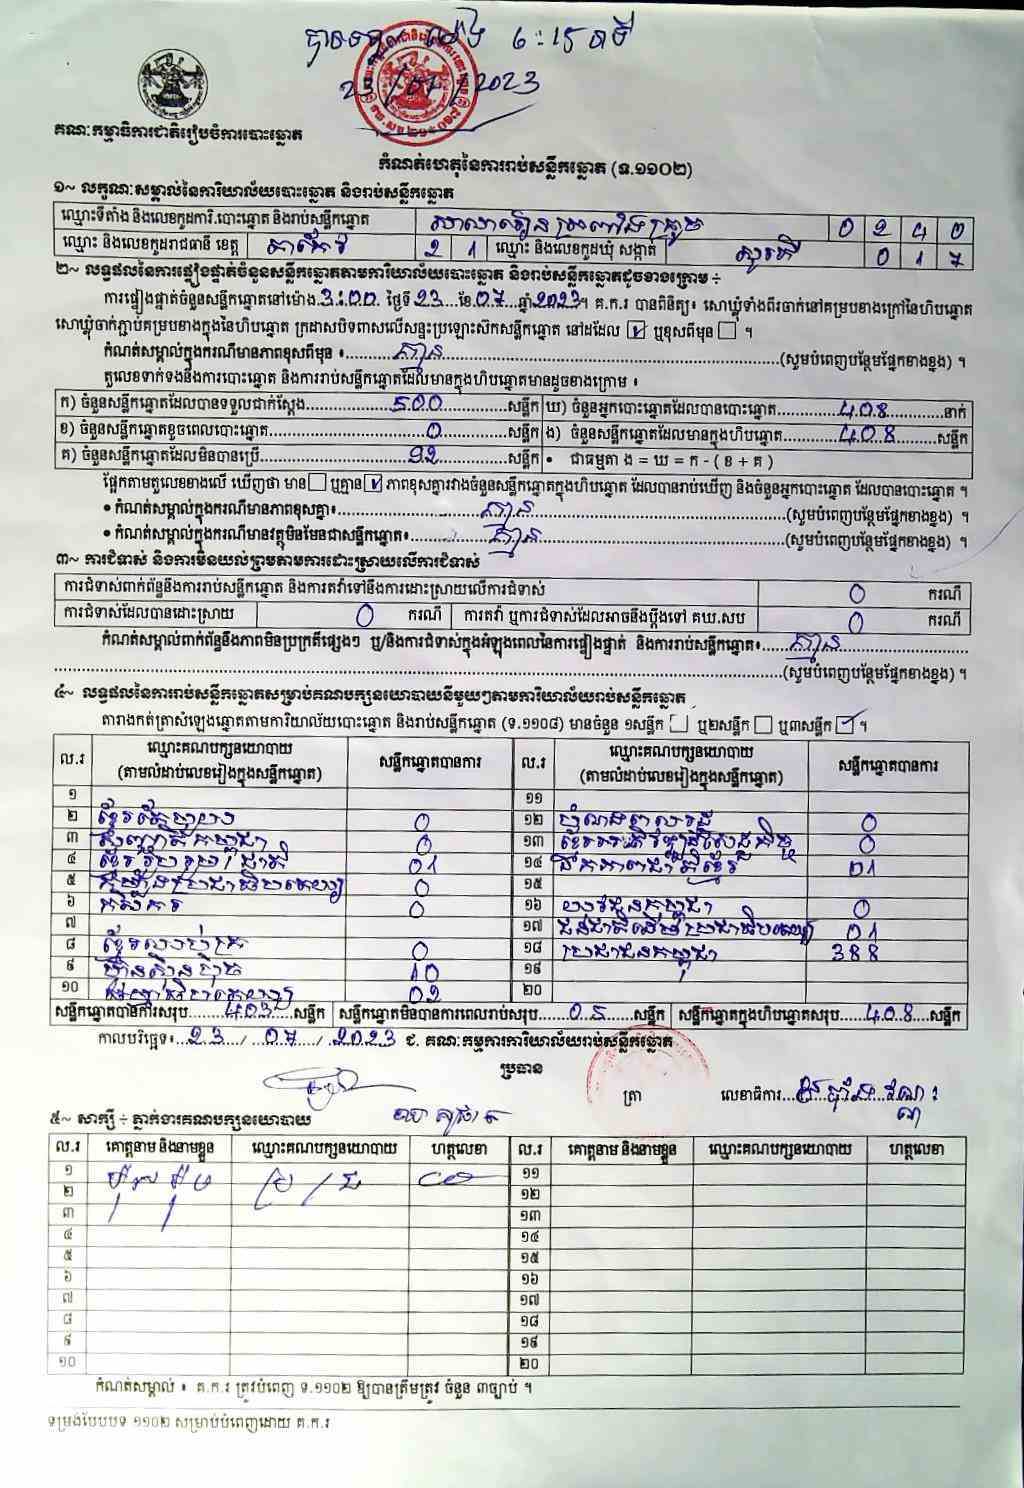 ម៉ោង ៦:១៥នាទី
23/07/2023
គណៈកម្មាធិការជាតិរៀបចំការបោះឆ្នោត
កំណត់ហេតុនៃការរាប់សន្លឹកឆ្នោត (ទ.១១០២)
១~ លក្ខណៈសម្គាល់នៃការិយាល័យបោះឆ្នោត និងរាប់សន្លឹកឆ្នោត
ឈ្មោះទីតាំង និងលេខកូដការិ.បោះឆ្នោត និងរាប់សន្លឹកឆ្នោត សាលារៀន 0 2 4 0
ឈ្មោះ និងលេខកូដរាជធានី ខេត្ត តាកែវ 2 1 ឈ្មោះ និងលេខកូដឃុំ សង្កាត់ 0 1 7
២~ លទ្ធផលនៃការផ្ទៀងផ្ទាត់ចំនួនសន្លឹកឆ្នោតតាមការិយាល័យបោះឆ្នោត និងរាប់សន្លឹកឆ្នោតដូចខាងក្រោម ÷
ការផ្ទៀងផ្ទាត់ចំនួនសន្លឹកឆ្នោតនៅម៉ោង 3:00 ថ្ងៃទី 23 ខែ 07 ឆ្នាំ 2023។ គ.ក.រ បានពិនិត្យ៖ សោឃ្លុំទាំងពីរចាក់នៅគម្របខាងក្រៅនៃហិបឆ្នោត
សោឃ្លុំចាក់ភ្ជាប់គម្របខាងក្នុងនៃហិបឆ្នោត ក្រដាសបិទពាសលើសន្ទះប្រឡោះស៊កសន្លឹកឆ្នោត នៅដដែល ☑ ឬខុសពីមុន ☐ ។
កំណត់សម្គាល់ក្នុងករណីមានភាពខុសពីមុន ៖ គ្មាន (សូមបំពេញបន្ថែមផ្នែកខាងខ្នង) ។
តួលេខទាក់ទងនឹងការបោះឆ្នោត និងការរាប់សន្លឹកឆ្នោតដែលមានក្នុងហិបឆ្នោតមានដូចខាងក្រោម ៖
ក) ចំនួនសន្លឹកឆ្នោតដែលបានទទួលជាក់ស្ដែង 500 សន្លឹក ឃ) ចំនួនអ្នកបោះឆ្នោតដែលបានបោះឆ្នោត 408 នាក់
ខ) ចំនួនសន្លឹកឆ្នោតខូចពេលបោះឆ្នោត 0 សន្លឹក ង) ចំនួនសន្លឹកឆ្នោតដែលមានក្នុងហិបឆ្នោត 408 សន្លឹក
គ) ចំនួនសន្លឹកឆ្នោតដែលមិនបានប្រើ 92 សន្លឹក • ជាធម្មតា ង = ឃ = ក - ( ខ + គ )
ផ្អែកតាមតួលេខខាងលើ ឃើញថា មាន ☐ ឬគ្មាន ☑ ភាពខុសគ្នារវាងចំនួនសន្លឹកឆ្នោតក្នុងហិបឆ្នោត ដែលបានរាប់ឃើញ និងចំនួនអ្នកបោះឆ្នោត ដែលបានបោះឆ្នោត ។
• កំណត់សម្គាល់ក្នុងករណីមានភាពខុសគ្នា៖ គ្មាន (សូមបំពេញបន្ថែមផ្នែកខាងខ្នង) ។
• កំណត់សម្គាល់ក្នុងករណីមានវត្ថុមិនមែនជាសន្លឹកឆ្នោត៖ គ្មាន (សូមបំពេញបន្ថែមផ្នែកខាងខ្នង) ។
៣~ ការជំទាស់ និងការមិនយល់ព្រមតាមការដោះស្រាយលើការជំទាស់
ការជំទាស់ពាក់ព័ន្ធនឹងការរាប់សន្លឹកឆ្នោត និងការតវ៉ាទៅនឹងការដោះស្រាយលើការជំទាស់ 0 ករណី
ការជំទាស់ដែលបានដោះស្រាយ 0 ករណី ការតវ៉ា ឬការជំទាស់ដែលអាចនឹងប្ដឹងទៅ គឃ.សប 0 ករណី
កំណត់សម្គាល់ពាក់ព័ន្ធនឹងភាពមិនប្រក្រតីផ្សេងៗ ឬ/និងការជំទាស់ក្នុងអំឡុងពេលនៃការផ្ទៀងផ្ទាត់ និងការរាប់សន្លឹកឆ្នោត៖ គ្មាន
(សូមបំពេញបន្ថែមផ្នែកខាងខ្នង) ។
៤~ លទ្ធផលនៃការរាប់សន្លឹកឆ្នោតសម្រាប់គណបក្សនយោបាយនីមួយៗតាមការិយាល័យរាប់សន្លឹកឆ្នោត
តារាងកត់ត្រាសំឡេងឆ្នោតតាមការិយាល័យបោះឆ្នោត និងរាប់សន្លឹកឆ្នោត (ទ.១១០៨) មានចំនួន ១សន្លឹក ☐ ឬ២សន្លឹក ☐ ឬ៣សន្លឹក ☑ ។
ល.រ ឈ្មោះគណបក្សនយោបាយ (តាមលំដាប់លេខរៀងក្នុងសន្លឹកឆ្នោត) សន្លឹកឆ្នោតបានការ ល.រ ឈ្មោះគណបក្សនយោបាយ (តាមលំដាប់លេខរៀងក្នុងសន្លឹកឆ្នោត) សន្លឹកឆ្នោតបានការ
១ ១១
២ 0 ១២ 0
៣ 0 ១៣ 0
៤ ខ្មែររួបរួមជាតិ 01 ១៤ ឯកភាពជាតិខ្មែរ 01
៥ 0 ១៥
៦ កសិករ 0 ១៦ យុវជនកម្ពុជា 0
៧ ១៧ ជនជាតិដើមប្រជាធិបតេយ្យ 01
៨ 0 ១៨ ប្រជាជនកម្ពុជា 388
៩ ហ៊្វុនស៊ិនប៉ិច 10 ១៩
១០ 02 ២០
សន្លឹកឆ្នោតបានការសរុប 403 សន្លឹក សន្លឹកឆ្នោតមិនបានការពេលរាប់សរុប 05 សន្លឹក សន្លឹកឆ្នោតក្នុងហិបឆ្នោតសរុប 408 សន្លឹក
កាលបរិច្ឆេទ៖ 23 / 07 / 2023 ជ. គណៈកម្មការការិយាល័យរាប់សន្លឹកឆ្នោត
ប្រធាន
ត្រា លេខាធិការ
៥~ សាក្សី ÷ ភ្នាក់ងារគណបក្សនយោបាយ
ល.រ គោត្តនាម និងនាមខ្លួន ឈ្មោះគណបក្សនយោបាយ ហត្ថលេខា ល.រ គោត្តនាម និងនាមខ្លួន ឈ្មោះគណបក្សនយោបាយ ហត្ថលេខា
១ ១១
២ ១២
៣ ១៣
៤ ១៤
៥ ១៥
៦ ១៦
៧ ១៧
៨ ១៨
៩ ១៩
១០ ២០
កំណត់សម្គាល់ ៖ គ.ក.រ ត្រូវបំពេញ ទ.១១០២ ឱ្យបានត្រឹមត្រូវ ចំនួន ៣ច្បាប់ ។
ទម្រង់បែបបទ ១១០២ សម្រាប់បំពេញដោយ គ.ក.រ